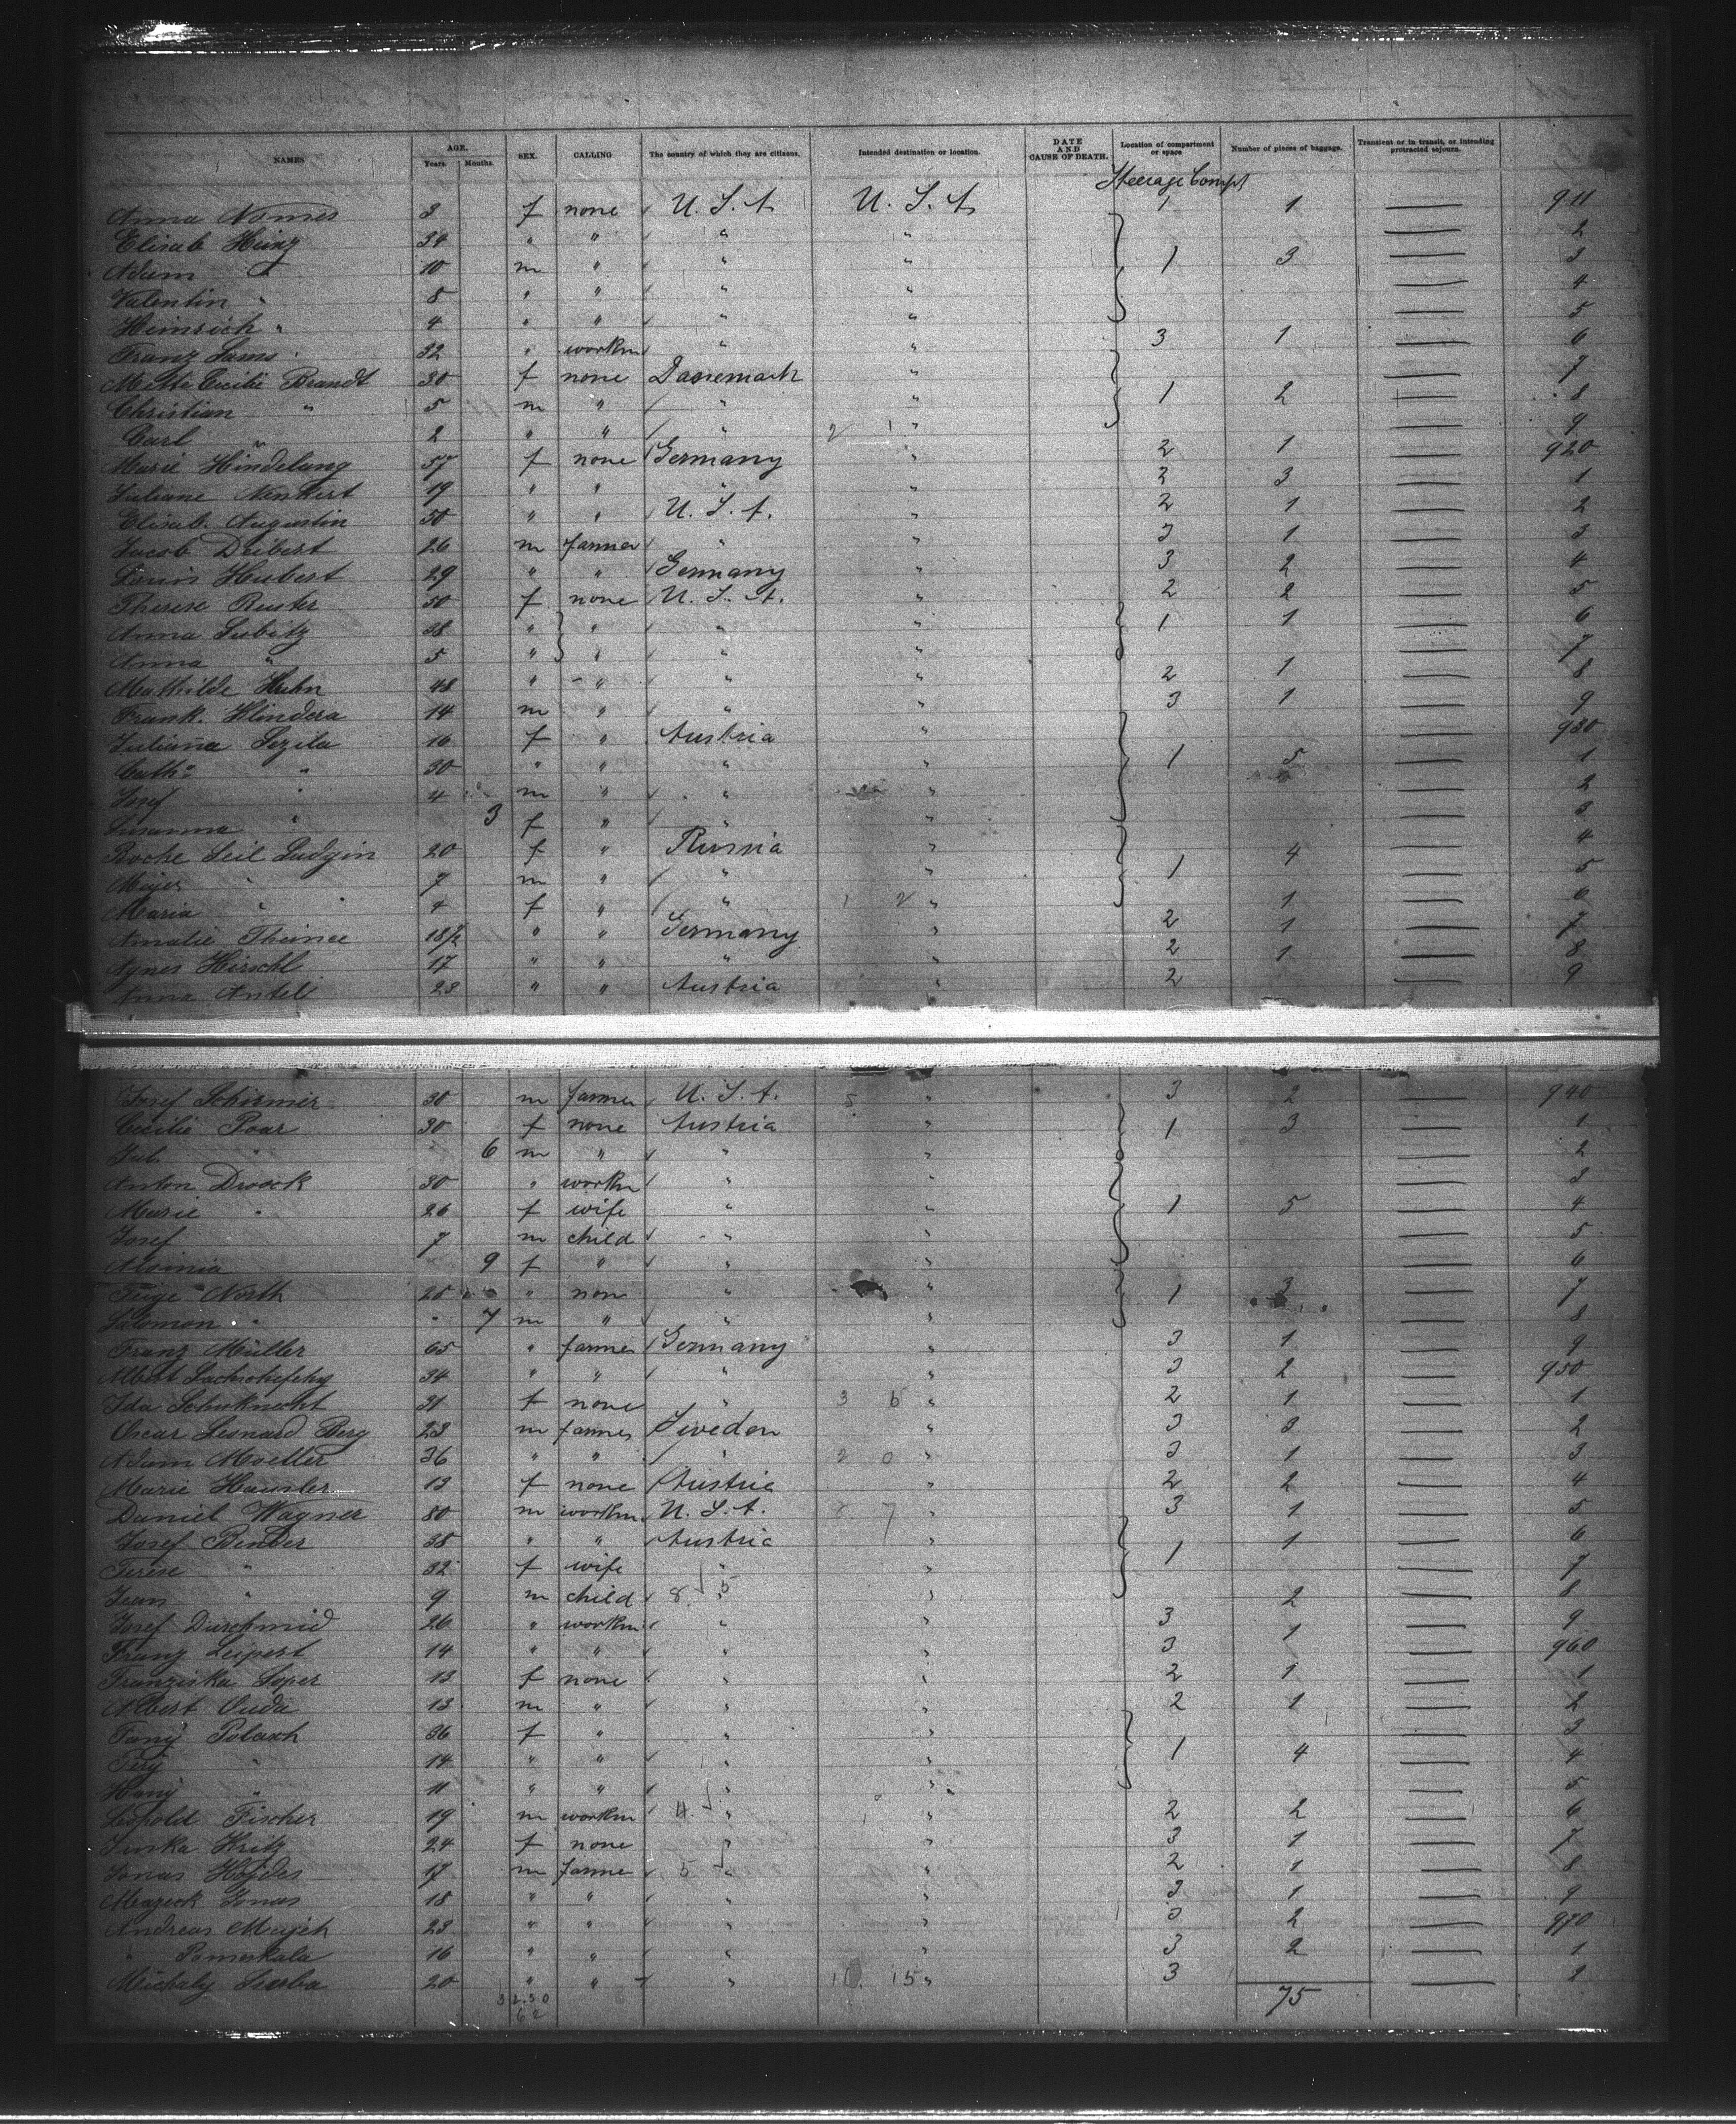 NAMES AGE. Years. Months. SEX. CALLING The country of which they are citizens. Intended destination or location. DATE AND CAUSE OF DEATH. Location of compartment or space Number of pieces of baggage. Transient or in transit, or intending protracted sojourn.
Steerage Compt
Anna 3 f none U. S. A. U. S. A. 1 1 — 911
Elisab Heinz 34 " " " " — 2
Adam " 10 m " " " 1 3 — 3
Valentin " 8 " " " " — 4
Heinrich " 4 " " " " — 5
Franz 32 " workm " " 3 1 — 6
Mette Cecilie Brandt 30 f none Danemark " — 7
Christian " 5 m " " " 1 2 — 8
Carl " 2 " " " 2 1 " — 9
Marie Hindelang 57 f none Germany " 2 1 — 920
Juliane 19 " " " " 2 3 — 1
Elisab. Augustin 50 " " U. S. A. " 2 1 — 2
Jacob Deibert 26 m farmer " " 3 1 — 3
Louis Hubert 29 " " Germany " 3 2 — 4
Therese Reuter 50 f none U. S. A. " 2 2 — 5
Anna Lubitz 38 " " " " 1 1 — 6
Anna " 5 " " " " — 7
Mathilde Huhn 48 " " " " 2 1 — 8
Frank. Hlindera 14 m " " " 3 1 — 9
Juliana Sezila 16 f " Austria " — 930
Cath. " 30 " " " " 1 5 — 1
Josef " 4 m " " " — 2
Susanna " 3 f " " " — 3
Ludgin 20 f " Russia " 4 — 4
Meyer " 7 m " " " 1 — 5
Maria " 4 f " " 1 2 " 1 — 6
Amalie 18/2 " " Germany " 2 1 — 7
Agnes Hirschl 17 " " " " 2 1 — 8
Anna Antell 23 " " Austria " 2 — 9
Josef Schirmer 30 m farmer U. S. A. " 3 2 — 940
Cecilie Poar 30 f none Austria " 1 3 — 1
Jul. " 6 m " " " — 2
Anton Drosck 30 " workm " " — 3
Marie " 26 f wife " " 1 5 — 4
Josef 7 m child " " — 5
9 f " " " — 6
Feige North 25 " non " " 1 3 — 7
Salomon " 7 m " " " — 8
Franz Müller 65 " farmer Germany " 3 1 — 9
Albert 34 " " " " 3 2 — 950
Ida Schuknecht 31 f none " 3 6 " 2 1 — 1
Oscar Leonard Berg 23 m farmer Sweden " 3 3 — 2
Adam Moeller 36 " " " 2 0 " 3 1 — 3
Marie Hausler 13 f none Austria " 2 2 — 4
Daniel Wagner 80 m workm U. S. A. 7 " 3 1 — 5
Josef Bender 38 " " Austria " 1 1 — 6
Terese " 32 f wife " " — 7
Jean " 9 m child 8 5 " " 2 — 8
Josef Durschmid 26 " workm " " 3 1 — 9
Franz Leipert 14 " " " " 3 — 960
Franziska Soper 13 f none " " 2 1 — 1
Albert Ouda 13 m " " " 2 1 — 2
Fany Polach 36 f " " " — 3
Tery " 14 " " " " 1 4 — 4
Hany " 11 " " " " — 5
Leopold Fischer 19 m workm 4 " " 2 2 — 6
Juska Kritz 24 f none " " 3 1 — 7
Jonas Hojdes 17 m farmer 5 " " 2 1 — 8
Jonas 18 " " " " 3 1 — 9
Andreas 23 " " " " 3 2 — 970
" Pomerkala 16 " " " " 3 2 — 1
Michaly 20 " " " 10. 15 " 3 — 2
75